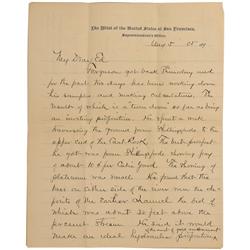 The Mint of the United States at San Francisco.
Superintendent's Office.
Aug 5
My Dear Ed
Ferguson got back Thursday and
for the past two days has been working down
his samples and making calculations. The
result of which is a "turn down" so far as being
an inviting proposition. He spent a week
traversing the ground from Phillipsfords to the
upper end of the East Rock. The best prospect
he got was from Phillipsfords showing pay
of about 10¢ per Cubic yard. The showing of
platinum was small. He found that the
bars on either side of the river were the de-
posits of the Earlier Channel the bed of
which was about 30 feet above the
present Stream. He said it would
make an ideal Hydraulic proposition